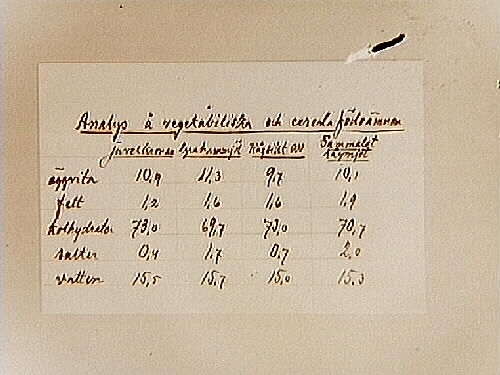 Analys å vegetabiliska och cereala födoämnen
Grahamsmjöl Rågsikt av Sammalet rågmjöl
äggvita 10,9 11,3 9,7 10,1
fett 1,2 1,6 1,6 1,9
kolhydrater 73,0 69,7 73,0 70,7
salter 0,4 1,7 0,7 2,0
vatten 15,5 15,7 15,0 15,3